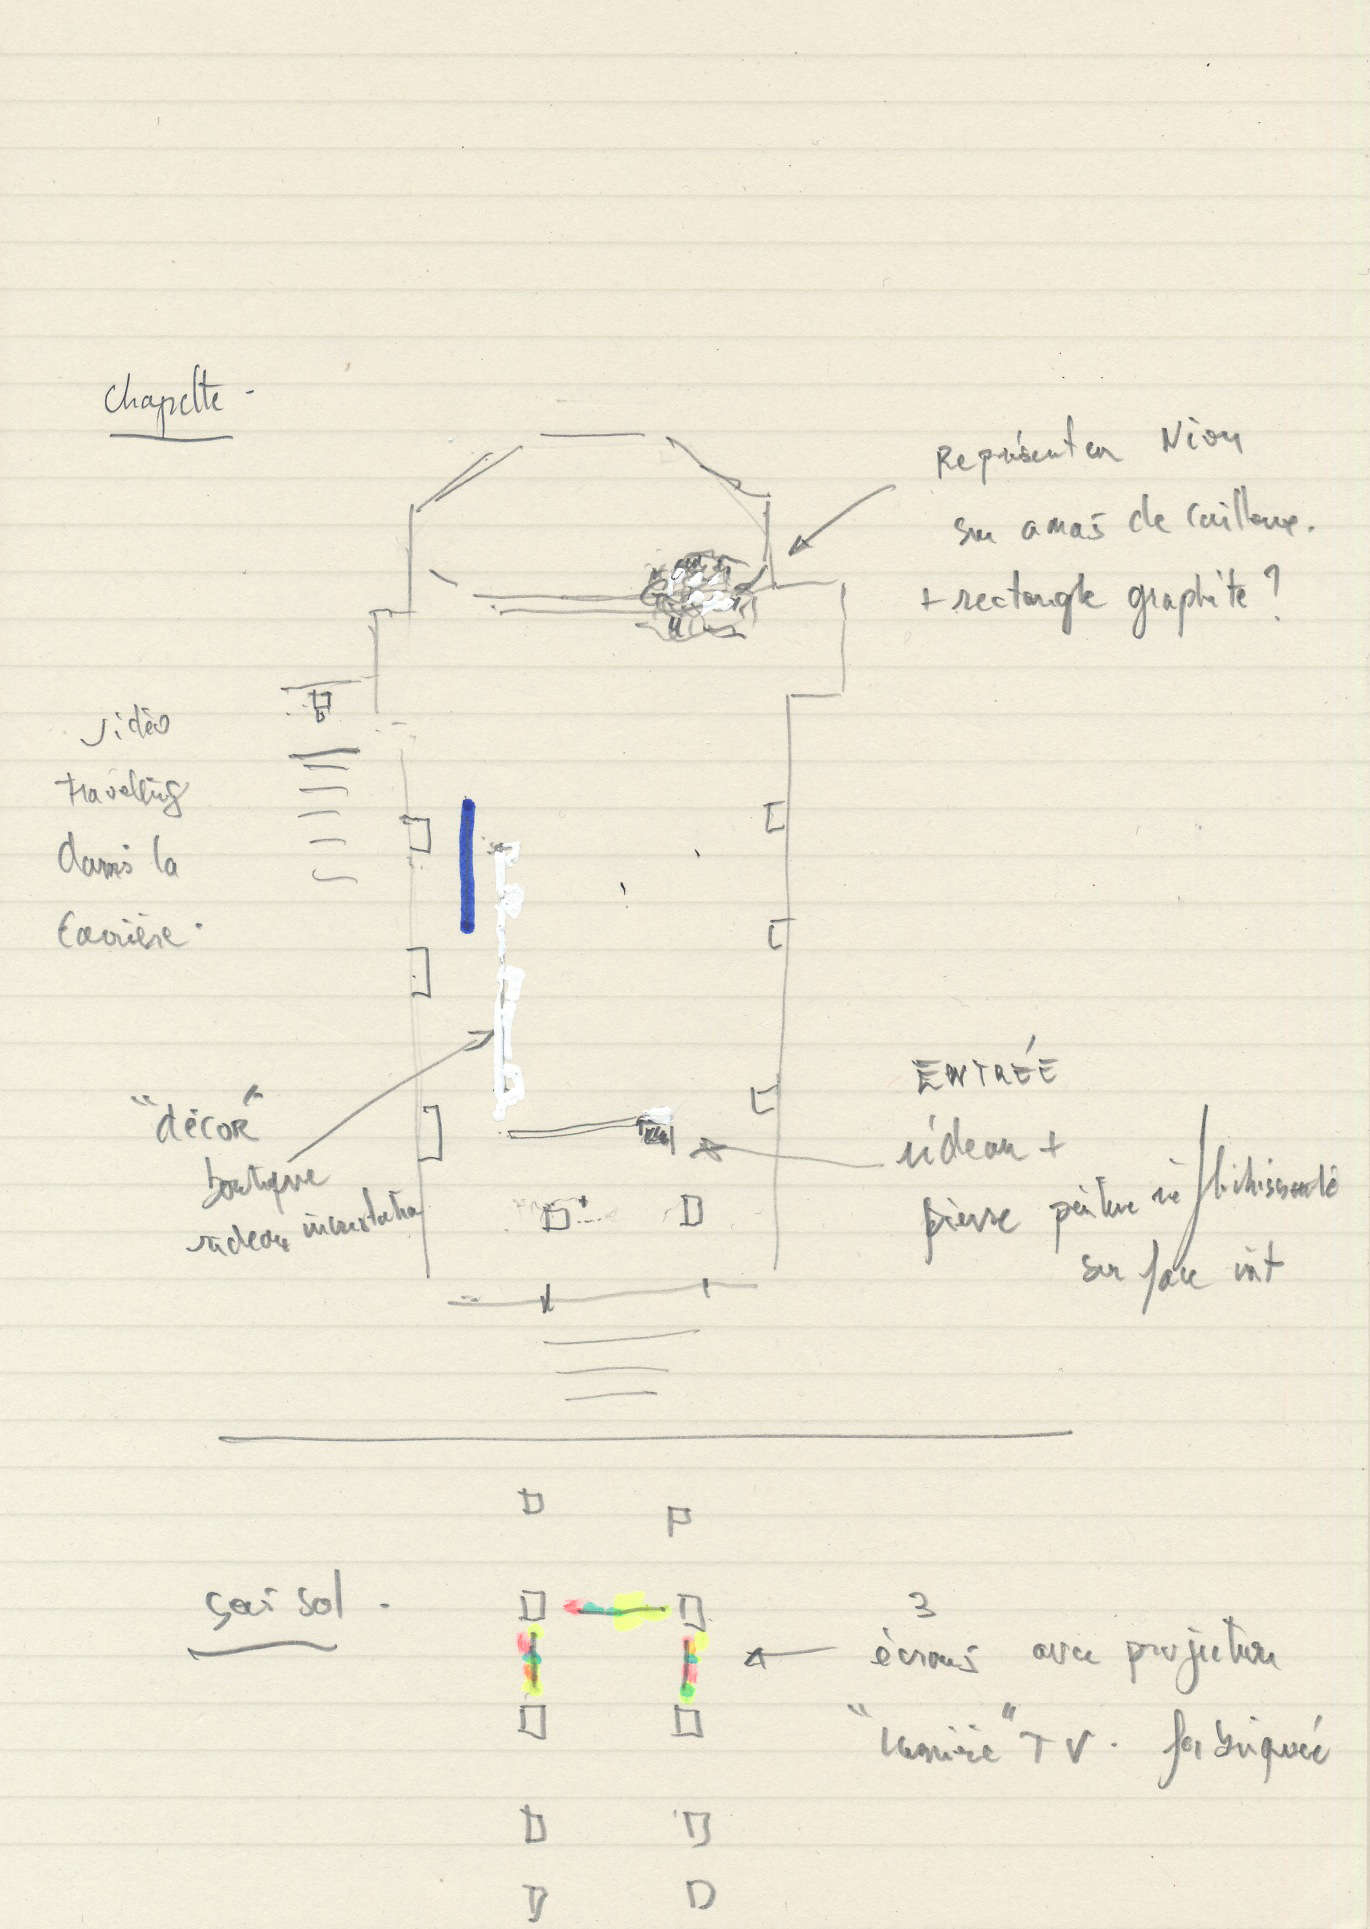 chapelle -
Représenter
sur amas de cailloux.
+ rectangle graphite ?
vidéo
travelling
dans la
carrière.
"décor"
boutique
rideau incrustation
ENTRÉE
rideau +
pierre peinture réfléchissante
sur face int
sous sol -
3
écrans avec projection
"lumière" TV. fabriquée